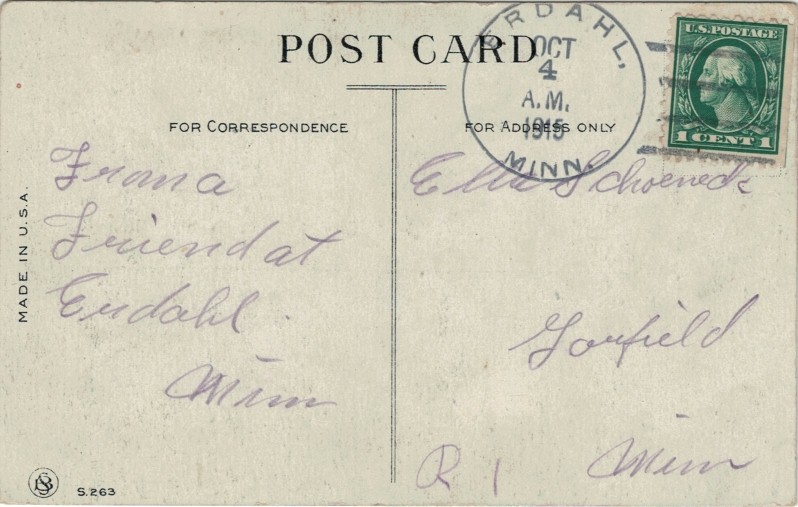 POST CARD
ERDAHL,
OCT
4
A.M.
1915
MINN.
U.S.POSTAGE
1 CENT 1
FOR CORRESPONDENCE
FOR ADDRESS ONLY
From a
Friend at
Erdahl.
Minn
Ella Schoeneck
Garfield
Minn
R 1
MADE IN U.S.A.
S.263